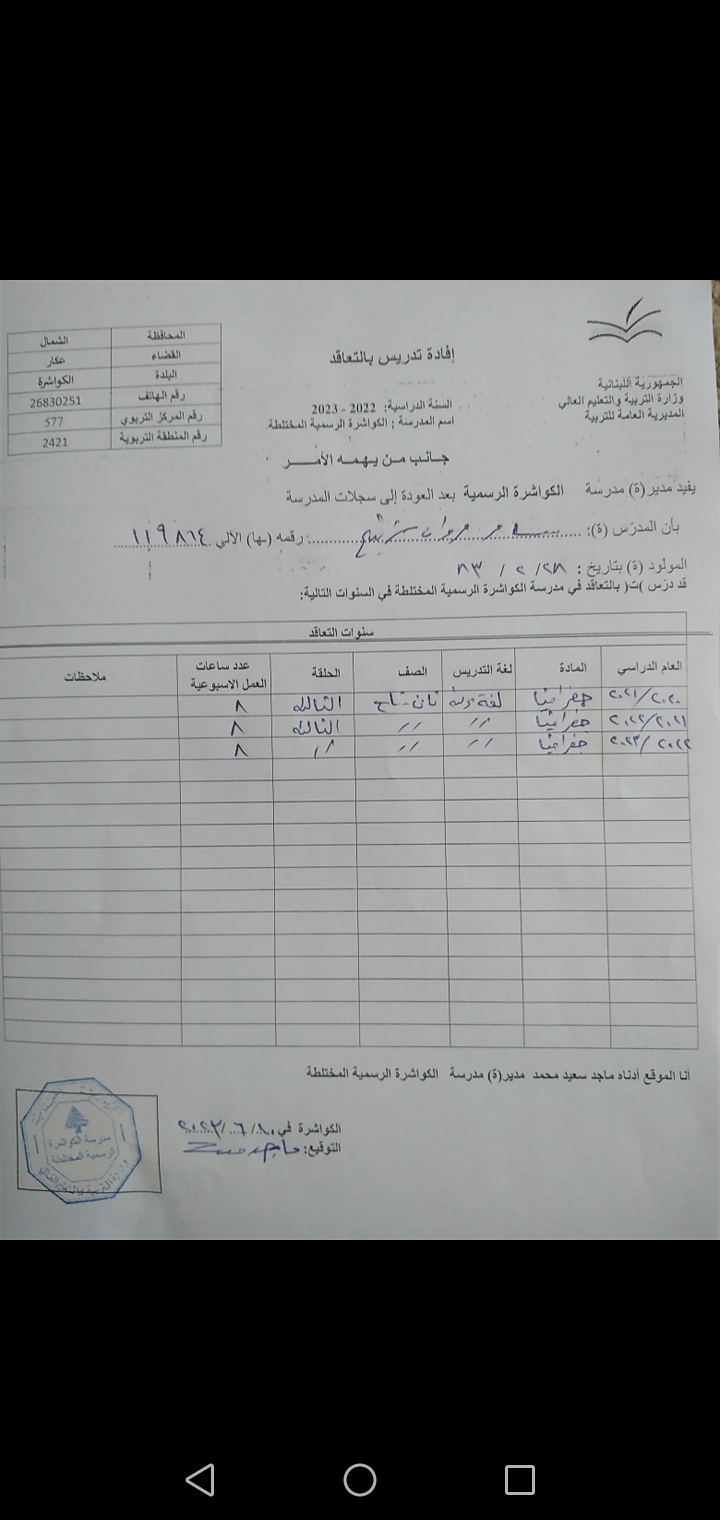 الجمهورية اللبنانية
وزارة التربية والتعليم العالي
المديرية العامة للتربية
إفادة تدريس بالتعاقد
السنة الدراسية: 2022 - 2023
اسم المدرسة : الكواشرة الرسمية المختلطة.
المحافظة الشمال
القضاء عكار
البلدة الكواشرة
رقم الهاتف 26830251
رقم المركز التربوي 577
رقم المنطقة التربوية 2421
جـانب من يـهمـه الأمـر
يفيد مدير(ة) مدرسة الكواشرة الرسمية بعد العودة إلى سجلات المدرسة
بأن المدرّس (ة): رقمه (ـها) الآلي ١١٩٨٦٤
المولود (ة) بتاريخ : ٢٨/ ٢ / ٨٣
قد درّس )ت( بالتعاقد في مدرسة الكواشرة الرسمية المختلطة في السنوات التالية:
سنوات التعاقد
العام الدراسي المادة لغة التدريس الصف الحلقة عدد ساعات العمل الاسبوعية ملاحظات
٢٠٢١/٢٠٢٠ جغرافيا لغة الثالثة ٨
٢٠٢٢/٢٠٢١ جغرافيا // // الثالثة ٨
٢٠٢٣/ ٢٠٢٢ جغرافيا // // // ٨
أنا الموقع أدناه ماجد سعيد محمد مدير(ة) مدرسة الكواشرة الرسمية المختلطة
الكواشرة في
التوقيع:
مدرسة الكواشرة
الرسمية المختلطة